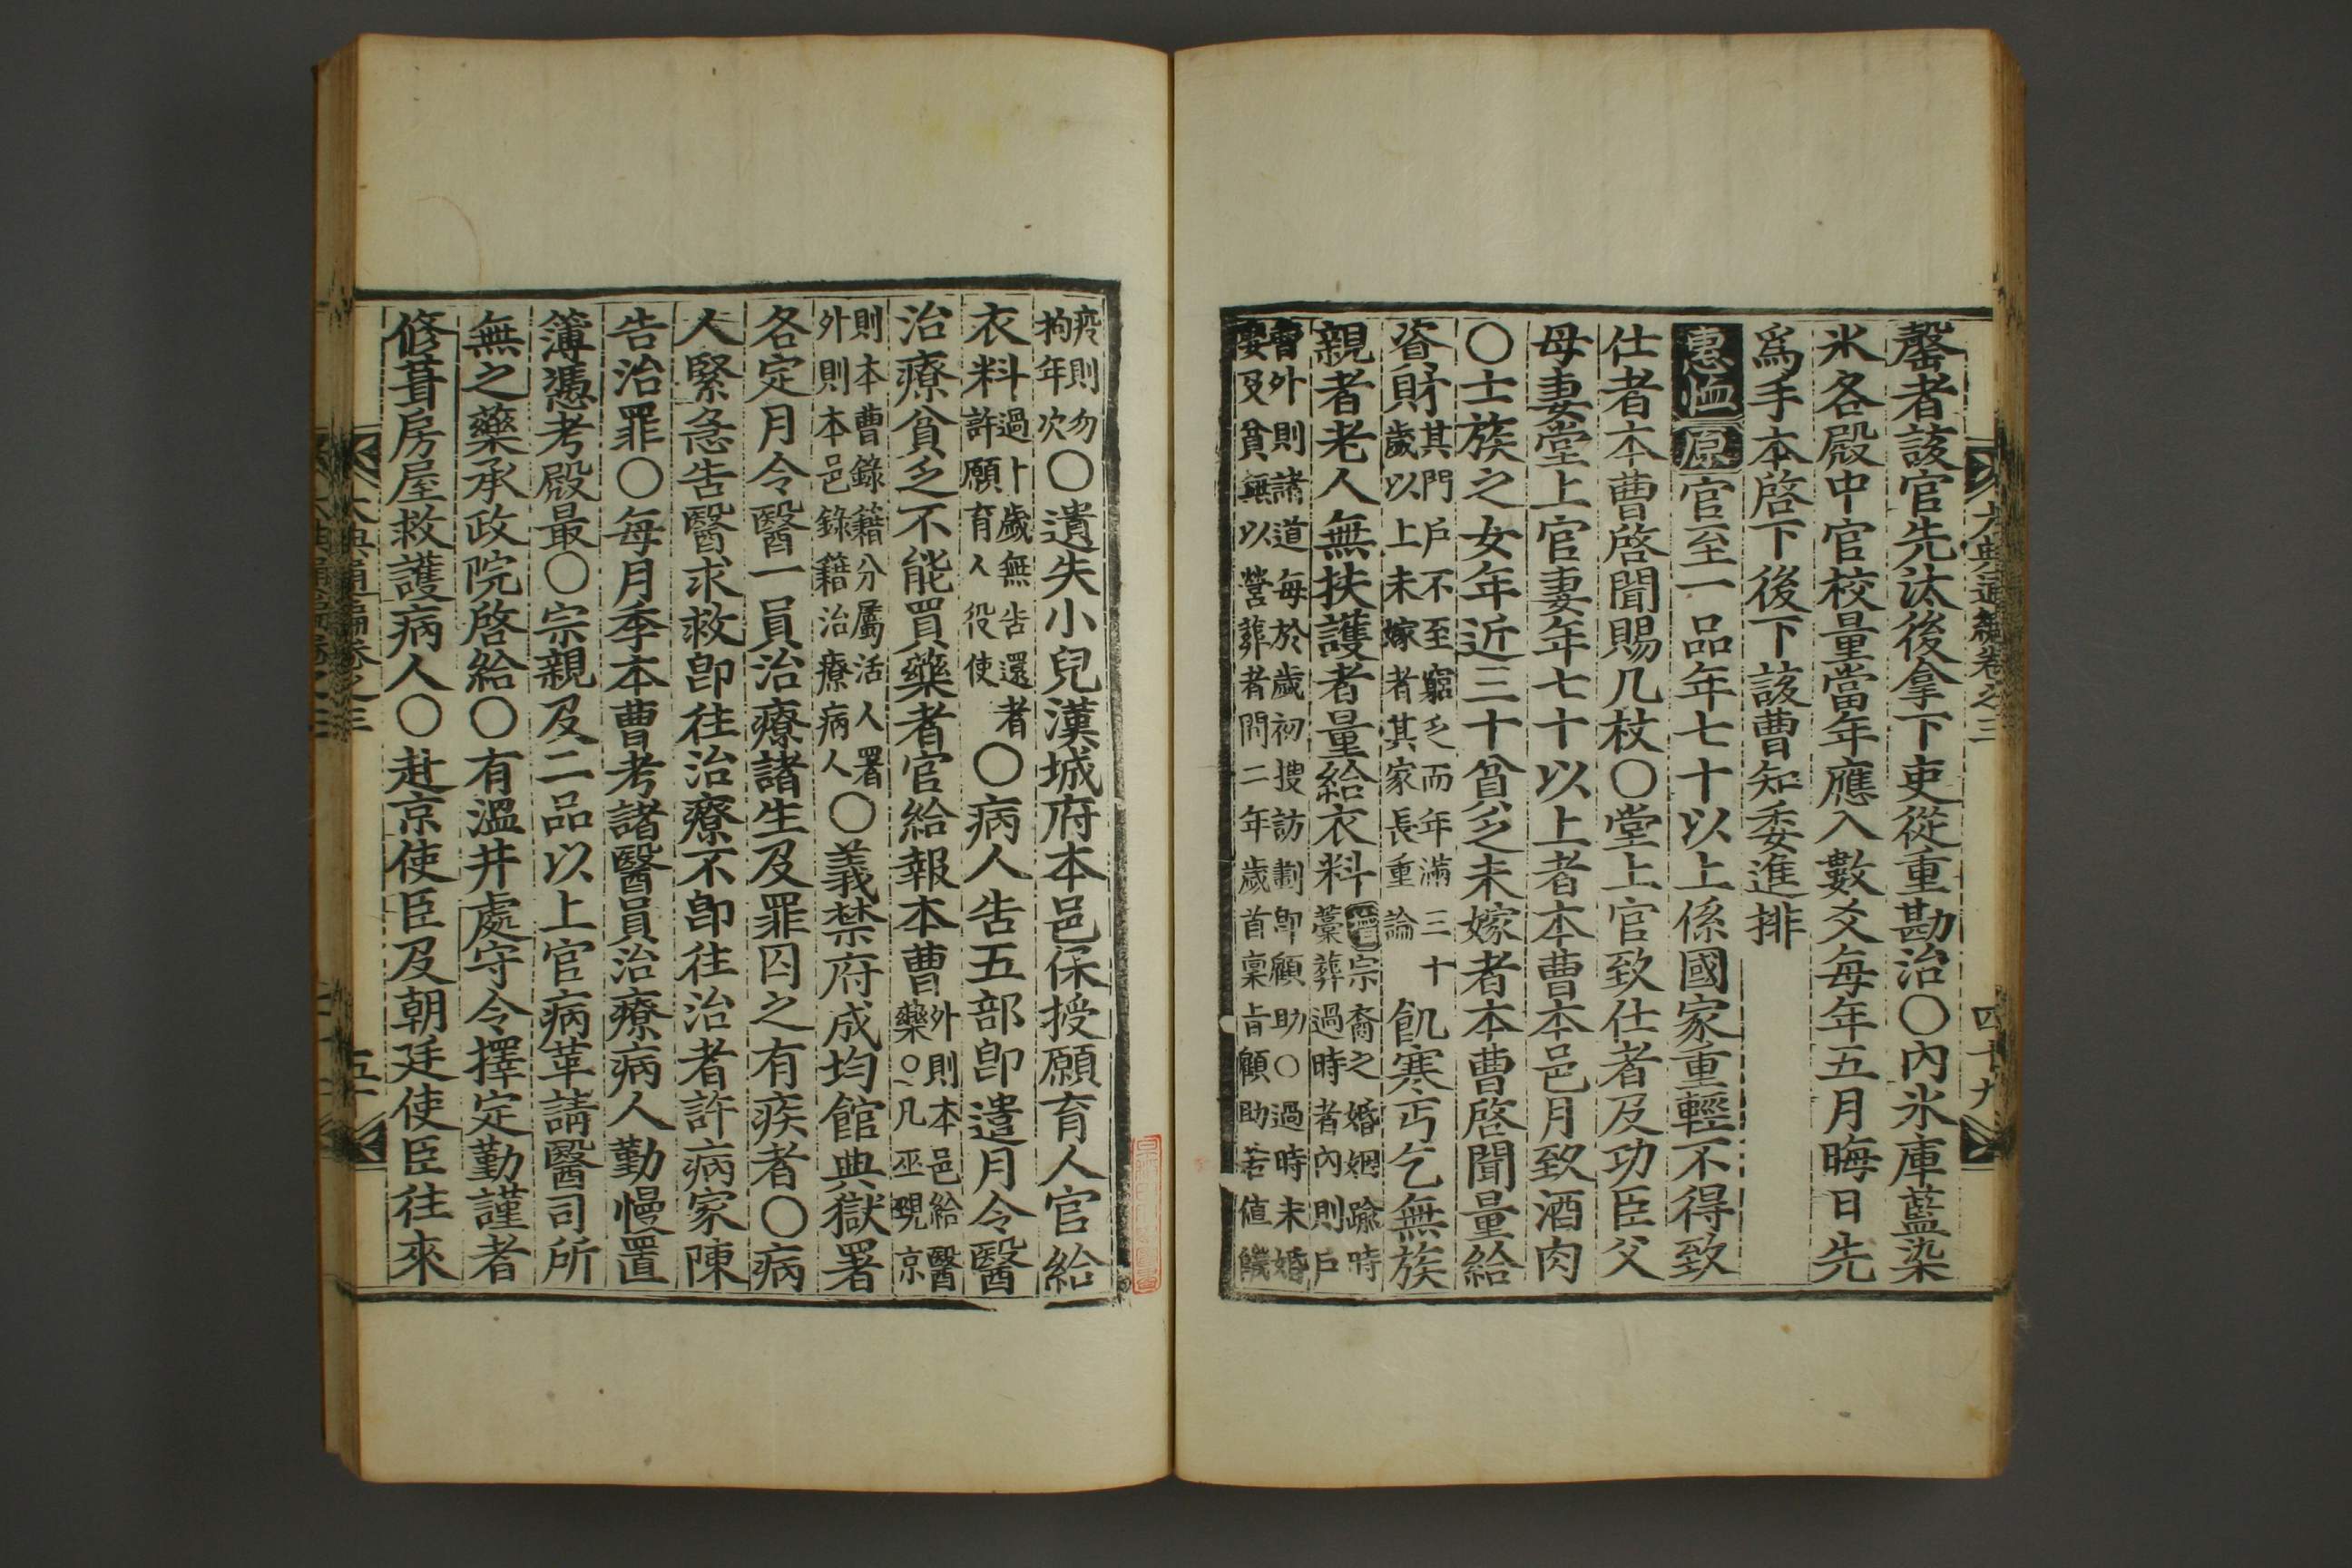 大典通編卷之三
四十九
罄者該官先汰後拿下吏從重勘治〇內氷庫藍染
氷各殿中官校量當年應入數爻每年五月晦日先
爲手本啓下後下該曹知委進排
惠恤 原 官至一品年七十以上係國家重輕不得致
仕者本曹啓聞賜几杖〇堂上官致仕者及功臣父
母妻堂上官妻年七十以上者本曹本邑月致酒肉
〇士族之女年近三十貧乏未嫁者本曹啓聞量給
資財
其門戶不至窮乏而年滿三十
歲以上未嫁者其家長重論
飢寒丐乞無族
親者老人無扶護者量給衣料
增 宗裔之婚姻踰時
藁葬過時者內則戶
曹外則諸道每於歲初搜訪劃卽顧助〇過時未婚
娶及貧無以營葬者問二年歲首稟旨顧助若値饑
疫則勿
拘年次
〇遺失小兒漢城府本邑保授願育人官給
衣料
過十歲無告還者
許願育人役使
〇病人告五部卽遣月令醫
治療貧乏不能買藥者官給報本曹
外則本邑給醫
藥〇凡巫覡京
則本曹錄籍分屬活人署
外則本邑錄籍治療病人
〇義禁府成均館典獄署
各定月令醫一員治療諸生及罪囚之有疾者〇病
人緊急告醫求救卽往治療不卽往治者許病家陳
告治罪〇每月季本曹考諸醫員治療病人勤慢置
簿憑考殿最〇宗親及二品以上官病革請醫司所
無之藥承政院啓給〇有溫井處守令擇定勤謹者
修葺房屋救護病人〇赴京使臣及朝廷使臣往來
大典通編卷之三
五十